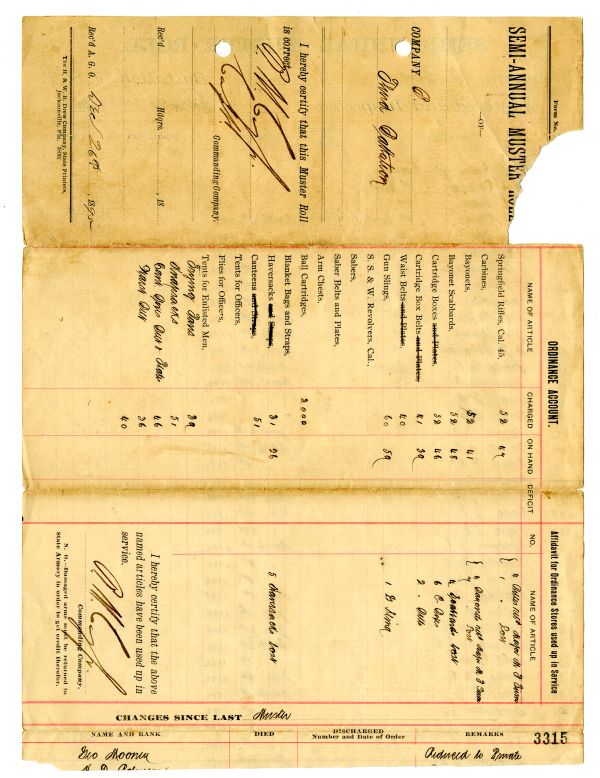 Form No.
SEMI-ANNUAL MUSTER ROLL
—OF—
COMPANY
Third Battalion
I hereby certify that this Muster Roll
is correct.
Commanding Company.
Rec'd Hdqrs. , 18
Rec'd A. G. O. Dec 26th , 1890
The H. & W. B. Drew Company, State Printers,
Jacksonville, Fla.
ORDINANCE ACCOUNT.
NAME OF ARTICLE CHARGED ON HAND DEFICIT
Springfield Rifles, Cal. 45, 52 47
Carbines,
Bayonets, 52 41
Bayonet Scabbards, 52 48
Cartridge Boxes and Plates, 52 46
Cartridge Box Belts and Plates, 41 39
Waist Belts and Plates, 40
Gun Slings, 60 59
S. S. & W. Revolvers, Cal.,
Sabers,
Saber Belts and Plates,
Arm Chests,
Ball Cartridges, 2000
Blanket Bags and Straps,
Haversacks and Straps, 31 26
Canteens and Straps, 51
Tents for Officers,
Flies for Officers,
Tents for Enlisted Men,
39
Knapsacks 51
46
36
40
Affidavit for Ordinance Stores used up in Service
NO. NAME OF ARTICLE
1 " Lost
4 Scabbards Lost
6 C. Boxes
2 " Belts
1 G Sling
5 Haversacks Lost
I hereby certify that the above
named articles have been used up in
service.
Commanding Company.
N. B.—Damaged arms must be returned to
State Armory in order to get credit therefor.
CHANGES SINCE LAST Muster
NAME AND RANK DIED DISCHARGED REMARKS
Number and Date of Order
3315
Geo Mooney Reduced to Private